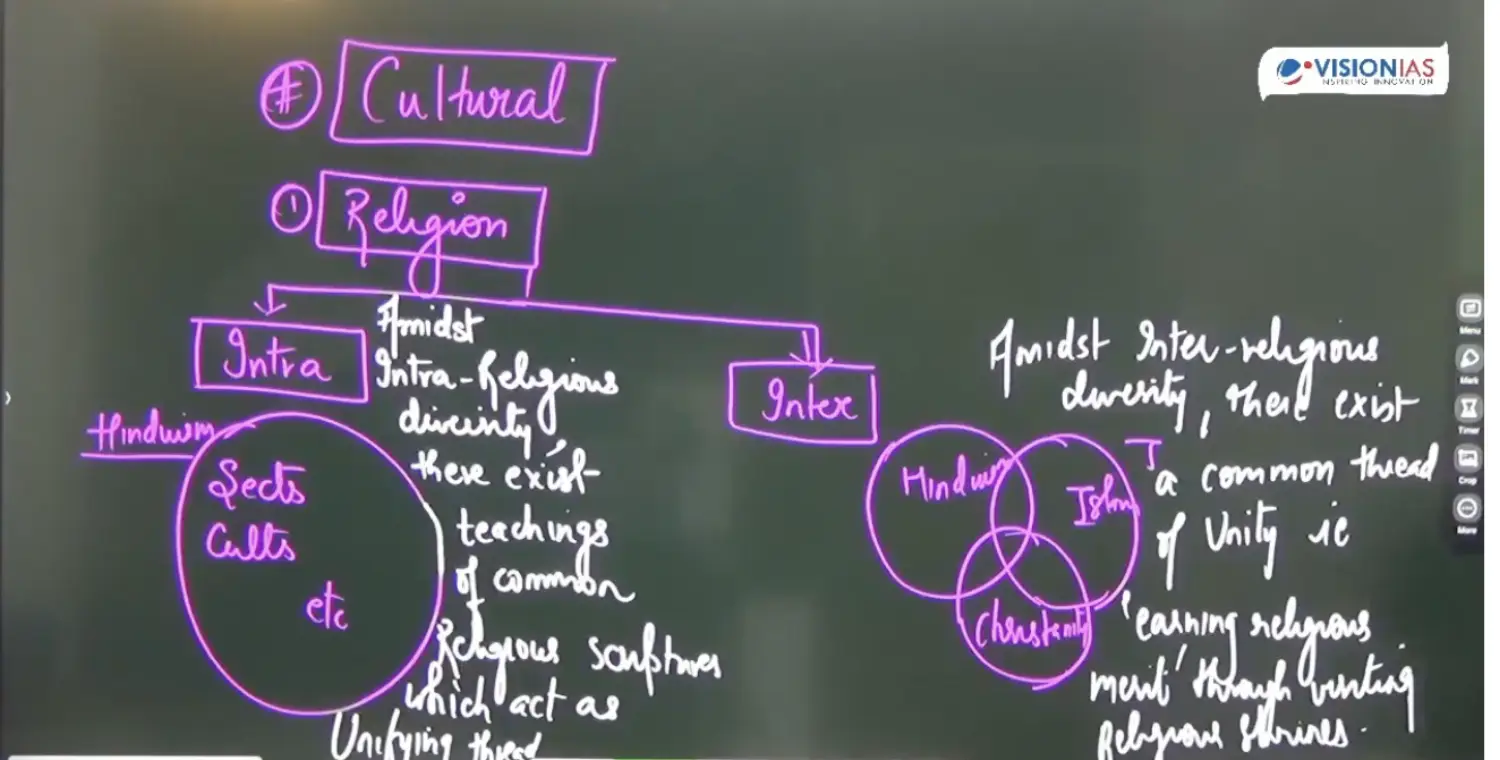 VISIONIAS
INSPIRING INNOVATION
# Cultural
1 Religion
Intra
Hinduism
Sects
Cults
etc
Amidst
Intra-Religious
diversity
there exist
teachings
of common
Religious sculptures
which act as
Unifying thread
Inter
Hinduism
Islam
Christianity
Amidst Inter-religious
diversity, there exist
a common thread
of Unity ie
'earning religious
merit' through visiting
Religious Shrines.
Menu
Mark
Timer
Crop
More